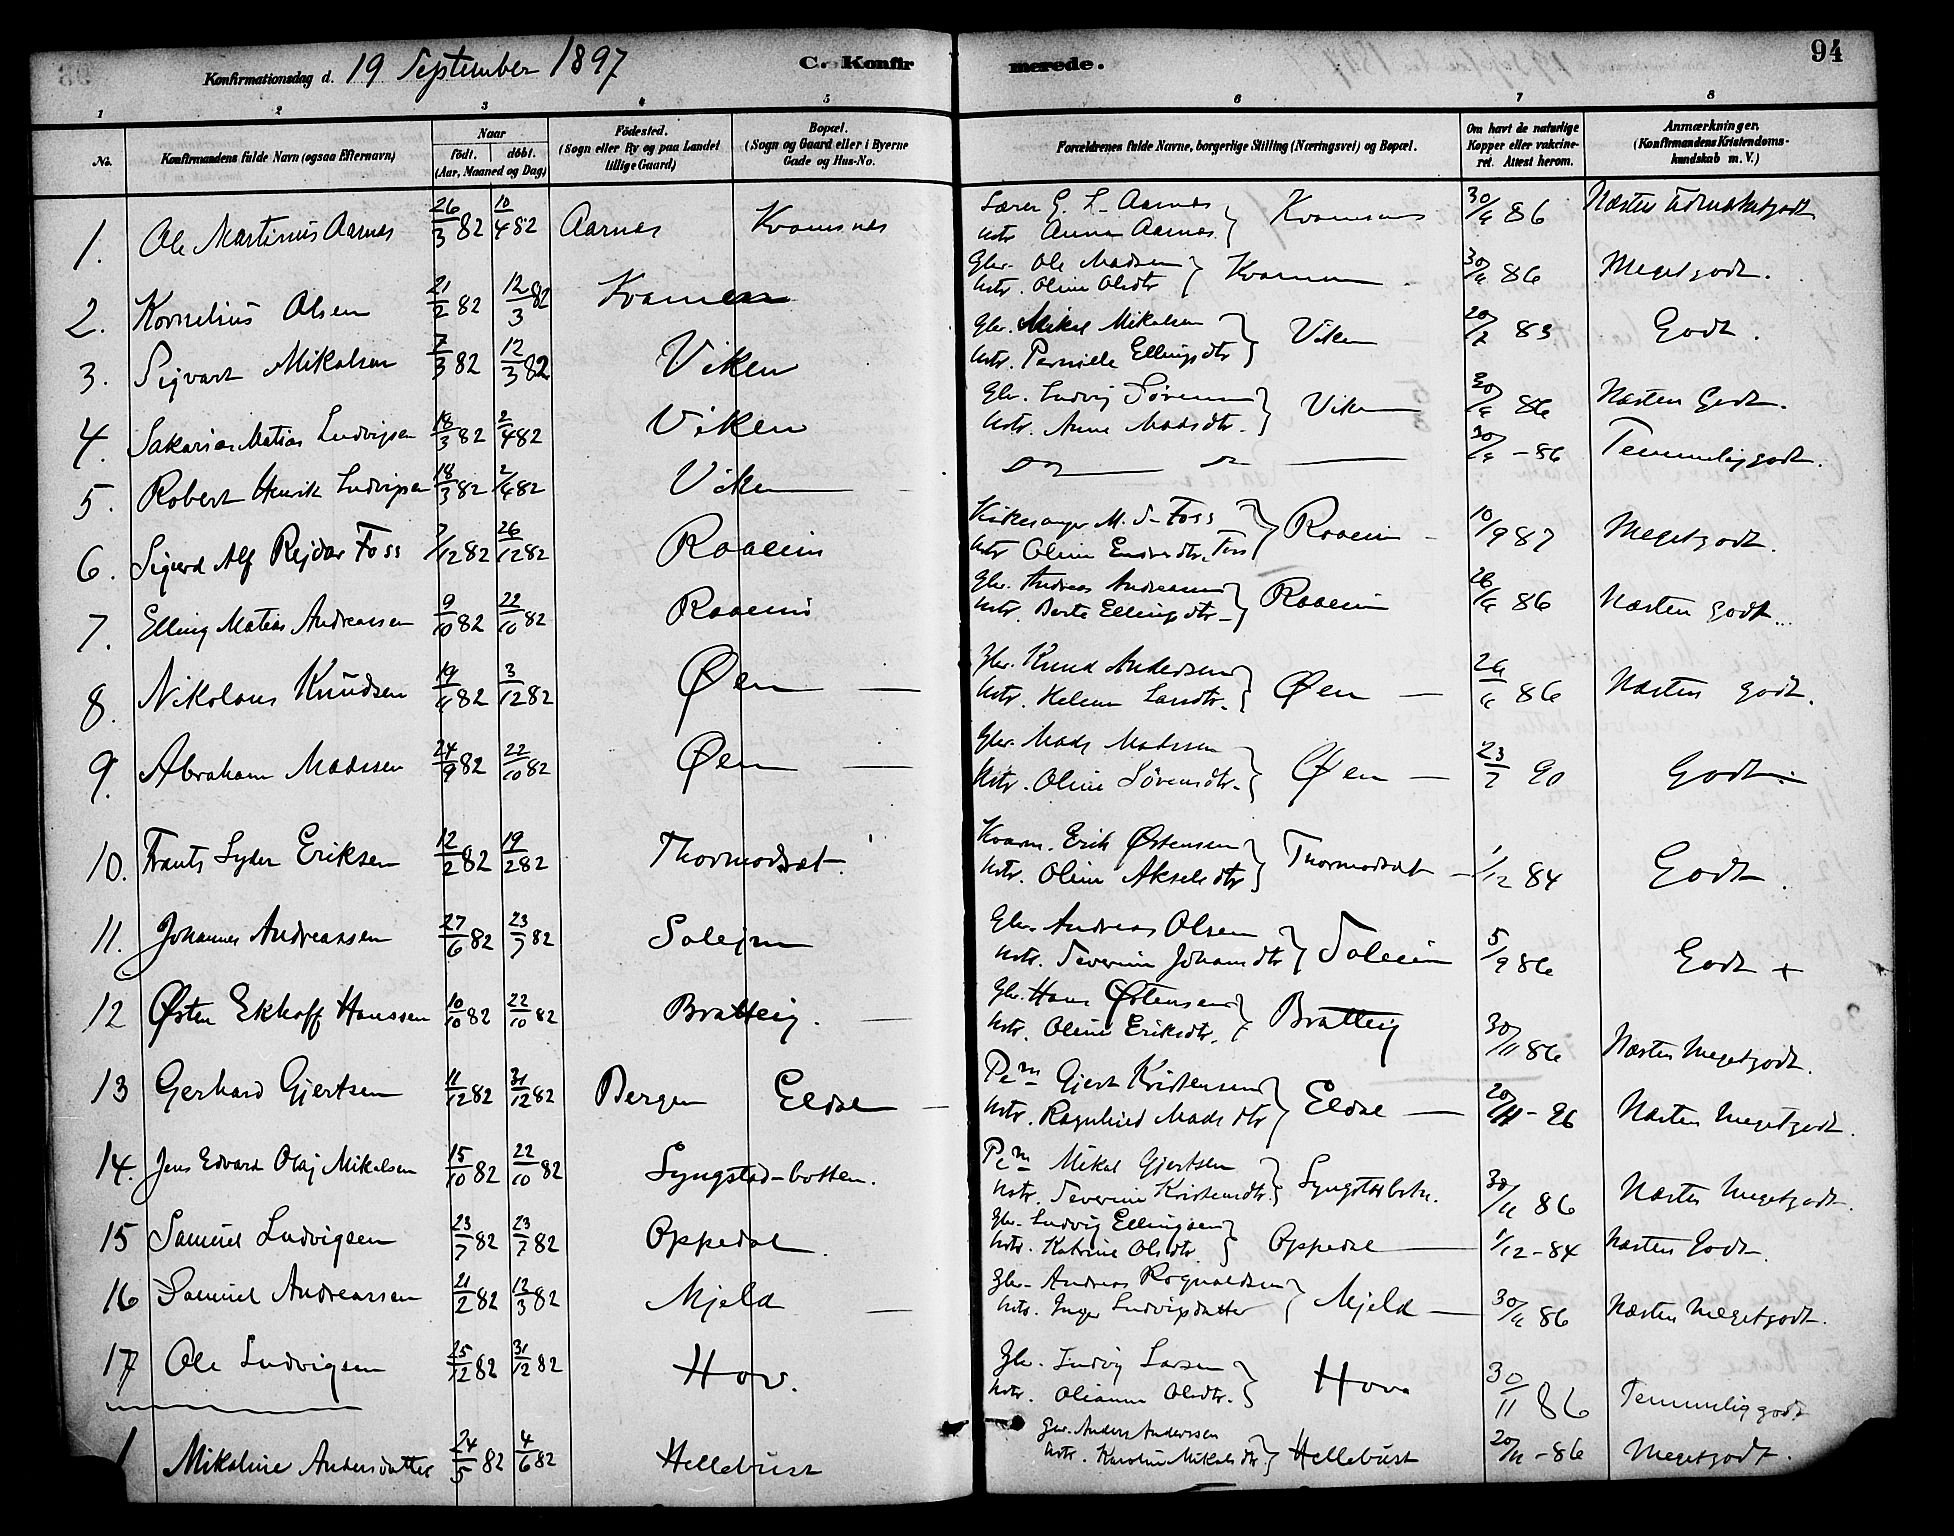 Konfirmationsdag d. 19 September 1897 C. Konfir merede. 94
1 2 3 4 5 6 7 8
No.
Konfirmandens fulde Navn (ogsaa Efternavn)
Naar
født. døbt.
(Aar, Maaned og Dag)
Fødested.
(Sogn eller By og paa Landet
tillige Gaard)
Bopæl.
(Sogn og Gaard eller i Byerne
Gade og Hus-No.
Forældrenes fulde Navne, borgerlige Stilling (Næringsvei) og Bopæl.
Om havt de naturlige
Kopper eller vakcine-
ret. Attest herom.
Anmærkninger.
(Konfirmandens Kristendoms-
kundskab m. V.)
1. Ole Martinus Aarnes 26/3 82 10/4 82 Aarnes Kvamsnes Lærer E. L. Aarnes Kvamsnes 30/6 86
Hstr. Anna Aarnes
2. Kornelius Olsen 21/2 82 12/3 82 Kvamen Gbr. Ole Madsen Kvammen 30/6 86 Megetgodt.
Hstr. Oline Olsdtr
3. Sigvart Mikalsen 7/3 82 12/3 82 Viken Gbr. Mikal Mikalsen Viken 20/2 83 Godt.
Hstr. Pernille Ellingsdtr
4. Sakarias Matias Ludvigsen 18/3 82 2/4 82 Viken Gbr. Ludvig Sørensen Viken 30/6 86 Næsten Godt.
Hstr. Anne Madsdtr.
5. Robert Henrik Ludvigsen 18/3 82 2/4 82 Viken do do 30/6 - 86 Temmeliggodt.
6. Sigurd Alf Rejdar Foss 7/12 82 26/12 82 Raaeim Kirkesanger M. S. Foss Raaeim 10/9 87 Megetgodt.
Hstr Oline Endresdtr. Foss
7. Elling Matias Andreassen 9/10 82 22/10 82 Raaeim Gbr. Andreas Andreassen Raaeim 26/6 86 Næsten godt
Hstr. Berte Ellingsdtr
8. Nikolaus Knudsen 19/6 82 3/12 82 Øen Gbr. Knud Andersen Øen 26/6 86 Næsten godt.
Hstr. Helene Larsdtr.
9. Abraham Madssen 24/9 82 22/10 82 Øen Gbr. Mads Madssen Øen 23/7 90 Godt
Hstr. Oline Sørensdtr.
10. Frants Lyder Eriksen 12/2 82 19/2 82 Thormodsæt. Kvarm. Erik Østensen Thormodsæt 1/12 84 Godt.
Hstr. Oline Akselsdtr
11. Johannes Andreassen 27/6 82 23/7 82 Solejm Gbr. Andreas Olsen Soleim 5/9 86 Godt +
Hstr. Severine Johansdtr
12 Østen Ekhoff Hanssen 10/10 82 22/10 82 Bratteig. Gbr. Hans Østensen Bratteig 30/11 86 Næsten Megetgodt.
Hstr. Oline Eriksdtr.
13 Gerhard Gjertsen 11/12 82 31/12 82 Bergen Eldal Pem Gjert Kristensen Eldal 20/11 - 96 Næsten Megetgodt.
Hstr. Ragnhild Madsdtr
14. Jens Edvard Olaj Mikalsen 15/10 82 22/10 82 Lyngstad-botten. Pem Mikal Gjertsen Lyngstadbotn. 30/11 86 Næsten Megetgodt.
Hstr. Severine Kristensdtr.
15 Samuel Ludvigsen 23/7 82 23/7 82 Oppedal. Gbr. Ludvig Ellingsen Oppedal 1/12 - 84 Næsten Godt.
Hstr. Katrine Olsdtr
16 Samuel Andreassen 21/2 82 12/3 82 Mjeld Gbr. Andreas Rognaldsen Mjeld 30/6 86 Næsten Megetgodt.
Hstr. Inger Ludvigsdatter
17 Ole Ludvigsen 25/12 82 31/12 82 Hov. Gbr. Ludvig Larsen Hov. 30/11 86 Temmeliggodt
Hstr. Olianna Olsdtr.
1 Mikaline Andersdatter 24/5 82 4/6 82 Hellebust Gbr. Anders Anderssen Hellebust 20/11 - 86 Megetgodt.
Hstr. Karoline Mikalsdtr